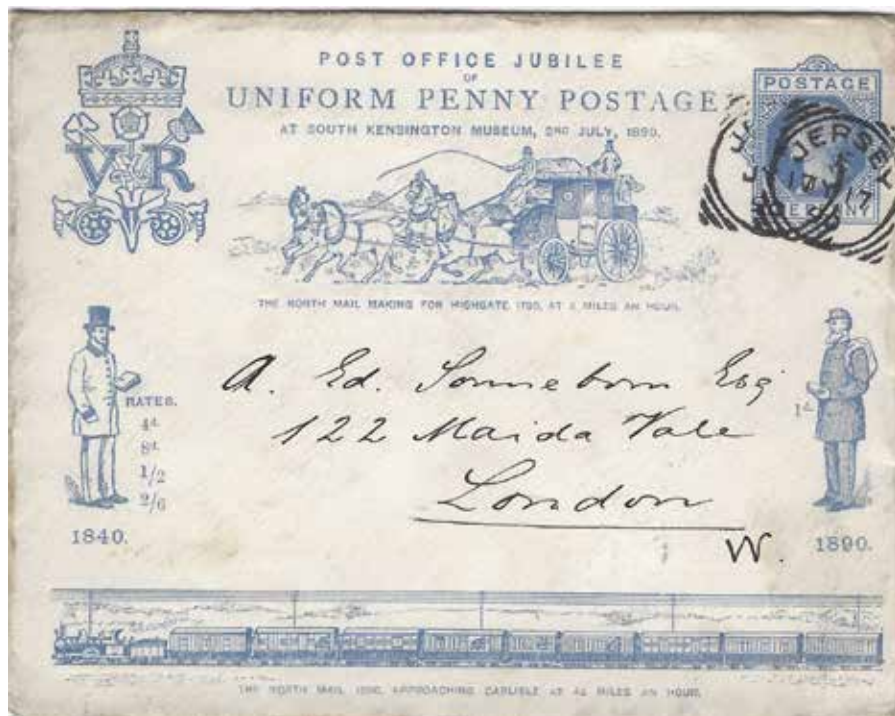 POST OFFICE JUBILEE
OF
UNIFORM PENNY POSTAGE
AT SOUTH KENSINGTON MUSEUM, 2ND JULY, 1890.
VR
POSTAGE
PENNY
JERSEY
17
THE NORTH MAIL MAKING FOR HIGHGATE 1790, AT 8 MILES AN HOUR.
A. Ed. Sonneborn Esq
122 Maida Vale
London
W.
RATES.
4d.
8d.
1/2
2/6
1840.
1d.
1890.
THE NORTH MAIL 1890, APPROACHING CARLISLE AT 48 MILES AN HOUR.